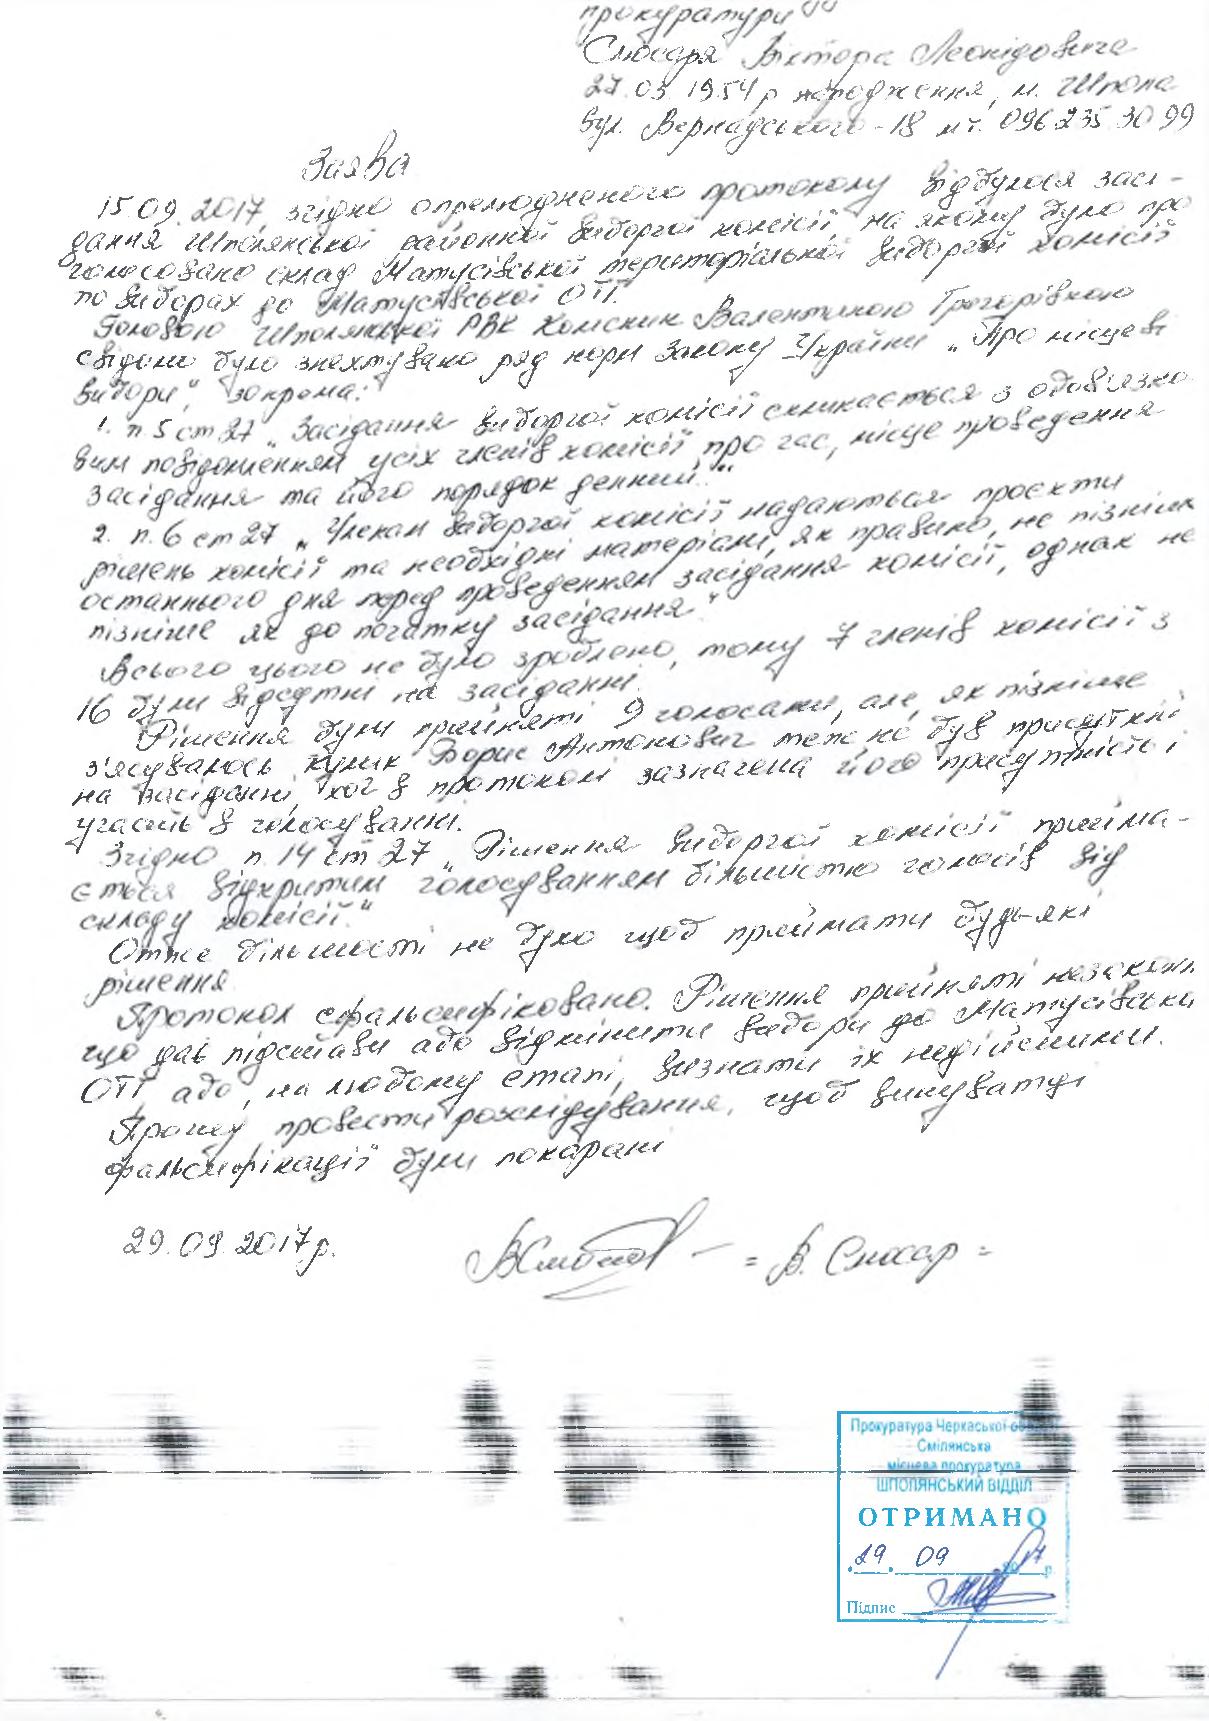 прокуратури
Слюсаря Віктора Леонідовича
27.03 1954 р народження, м. Шпола
вул. Вернадського - 18 м т. 096 235 30 99
Заява
15.09.2017, згідно оприлюдненого протоколу відбулося засі-
дання Шполянської районної виборчої комісії, на якому було про
голосовано склад Матусівської територіальної виборчої комісії
по виборах до Матусівської ОТГ.
Головою Шполянської РВК Валентиною Григорівною
свідомо було знехтувано ряд норм Закону України „Про місцеві
вибори", зокрема:
1. п 5 ст 27 „Засідання виборчої комісії скликається з обов'язко
вим повідомленням усіх членів комісії про час, місце проведення
засідання та його порядок денний."
2. п. 6 ст 27 „Членам виборчої комісії надаються проєкти
рішень комісії та необхідні матеріали, як правило, не пізніше
останнього дня перед проведенням засідання комісії, однак не
пізніше як до початку засідання"
Всього цього не було зроблено, тому 7 членів комісії з
16 були відсутні на засіданні.
Рішення були прийняті 9 голосами, але, як пізніше
з'ясувалось, Кулик Борис Антонович теж не був присутній
на засіданні, хоч в протоколі зазначена його присутність і
участь в голосуванні.
Згідно п. 14 ст 27 „Рішення виборчої комісії прийма-
ється відкритим голосуванням більшістю голосів від
складу комісії."
Отже більшості не було щоб приймати будь-які
рішення
Протокол сфальсифіковано. Рішення прийняті незаконн
що дає підстави або відмінити вибори до Матусівськи
ОТГ, або, на любому етапі, визнати їх недійсними.
Прошу провести розслідування, щоб винуватці
фальсифікації були покарані
29.09.2017 р.
= В. Слюсар =
Прокуратура Черкаської області
Смілянська
місцева прокуратура
ШПОЛЯНСЬКИЙ ВІДДІЛ
ОТРИМАНО
29. 09 2017 р.
Підпис